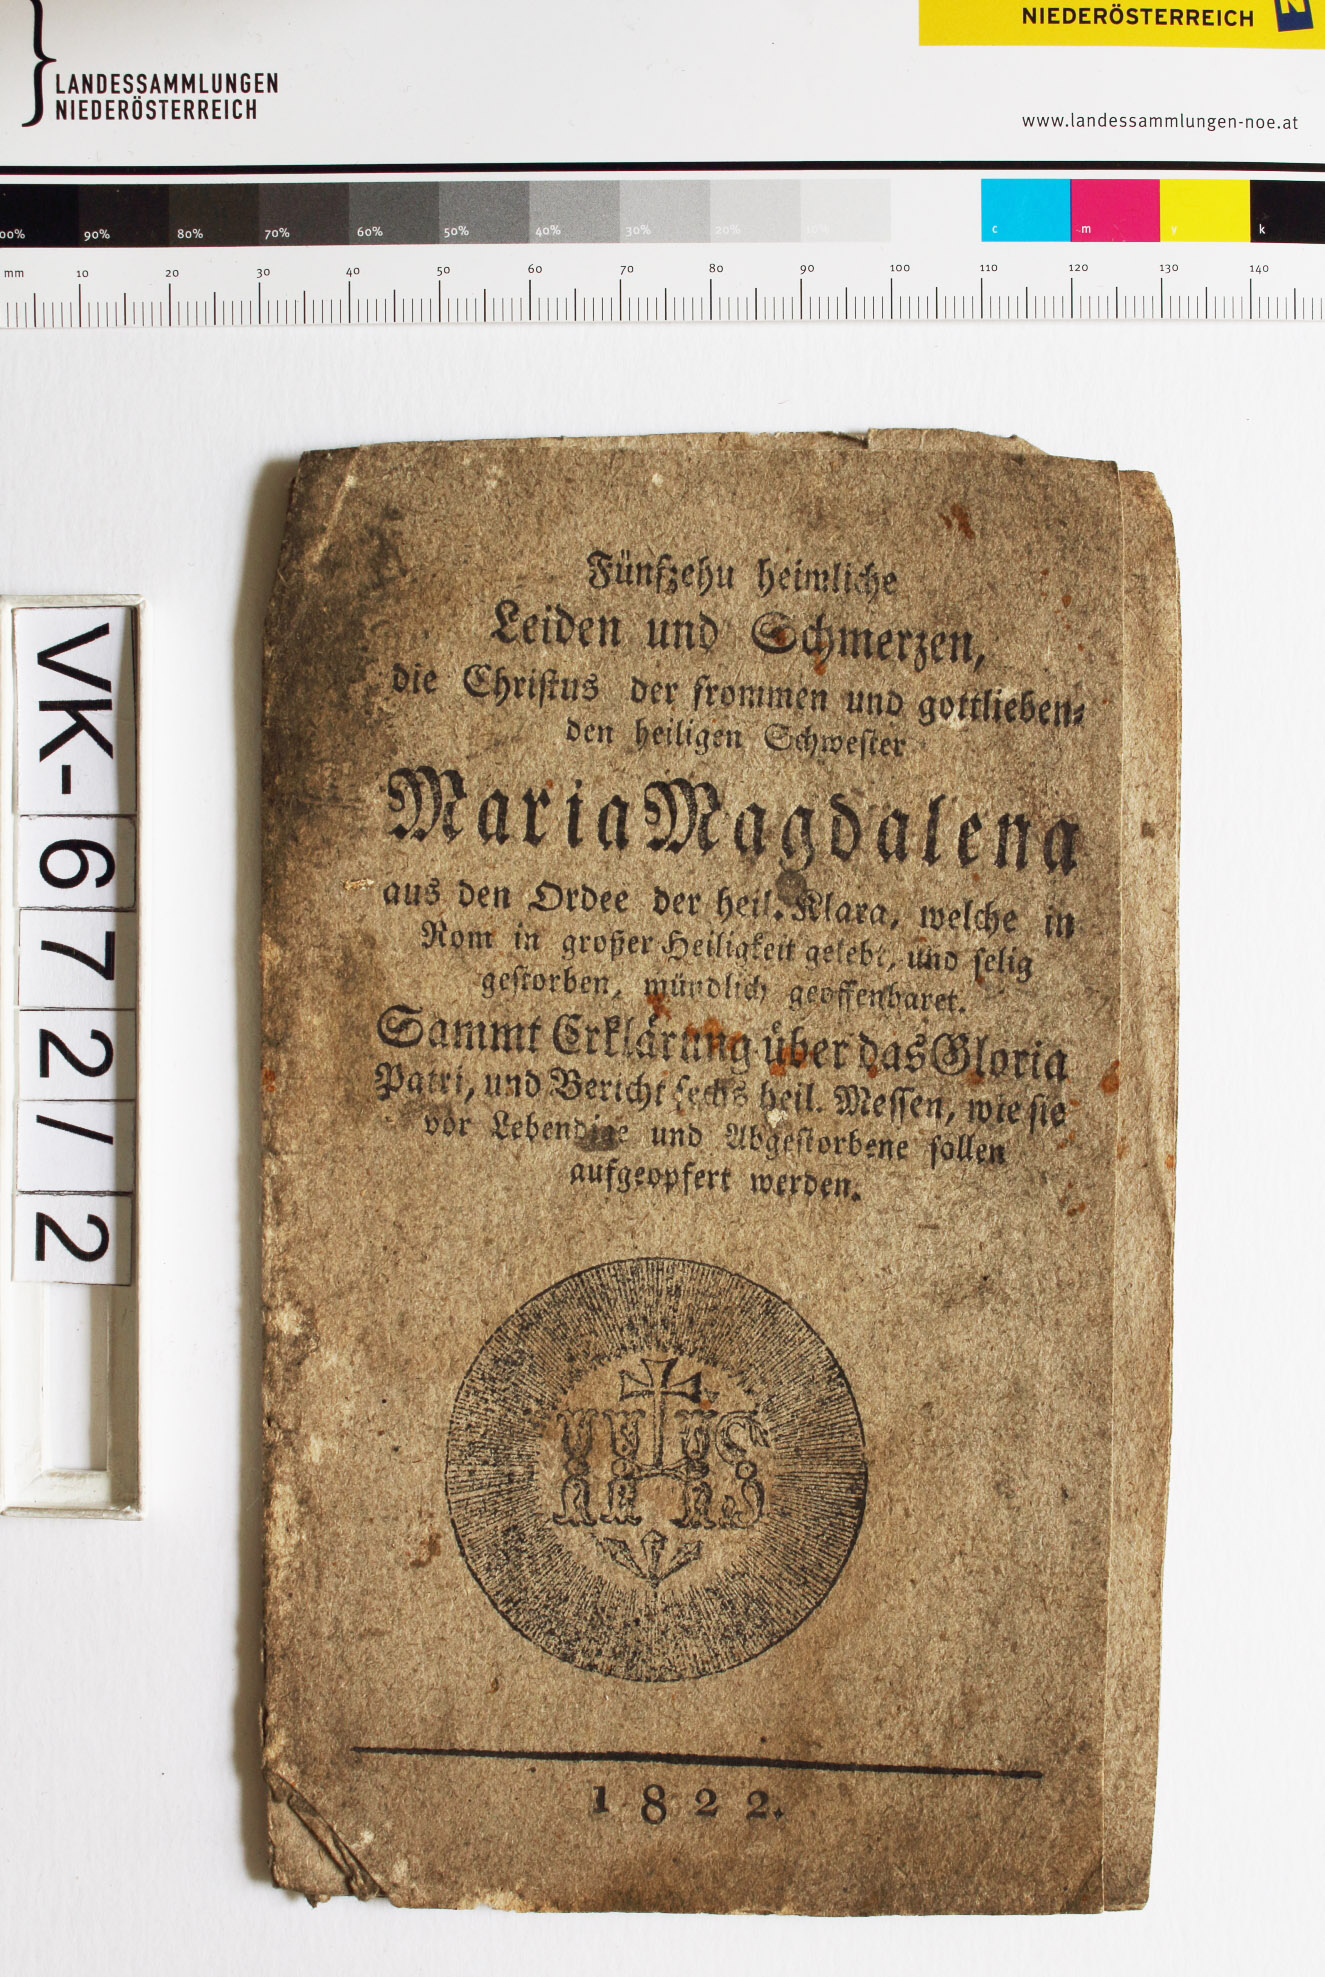 NIEDERÖSTERREICH
LANDESSAMMLUNGEN
NIEDERÖSTERREICH
www.landessammlungen-noe.at
00% 90% 80% 70% 60% 50% 40% 30% 20% 10% c m y k
mm 10 20 30 40 50 60 70 80 90 100 110 120 130 140
VK-672/2
Fünfzehu heimliche
Leiden und Schmerzen,
die Christus der frommen und gottlieben-
den heiligen Schwester
Maria Magdalena
aus den Ordee der heil. Klara, welche in
Rom in großer Heiligkeit gelebt, und selig
gestorben, mündlich geoffenbaret.
Sammt Erklärung über das Gloria
Patri, und Bericht sechs heil. Messen, wie sie
vor Lebendige und Abgestorbene sollen
aufgeopfert werden.
IHS
1822.